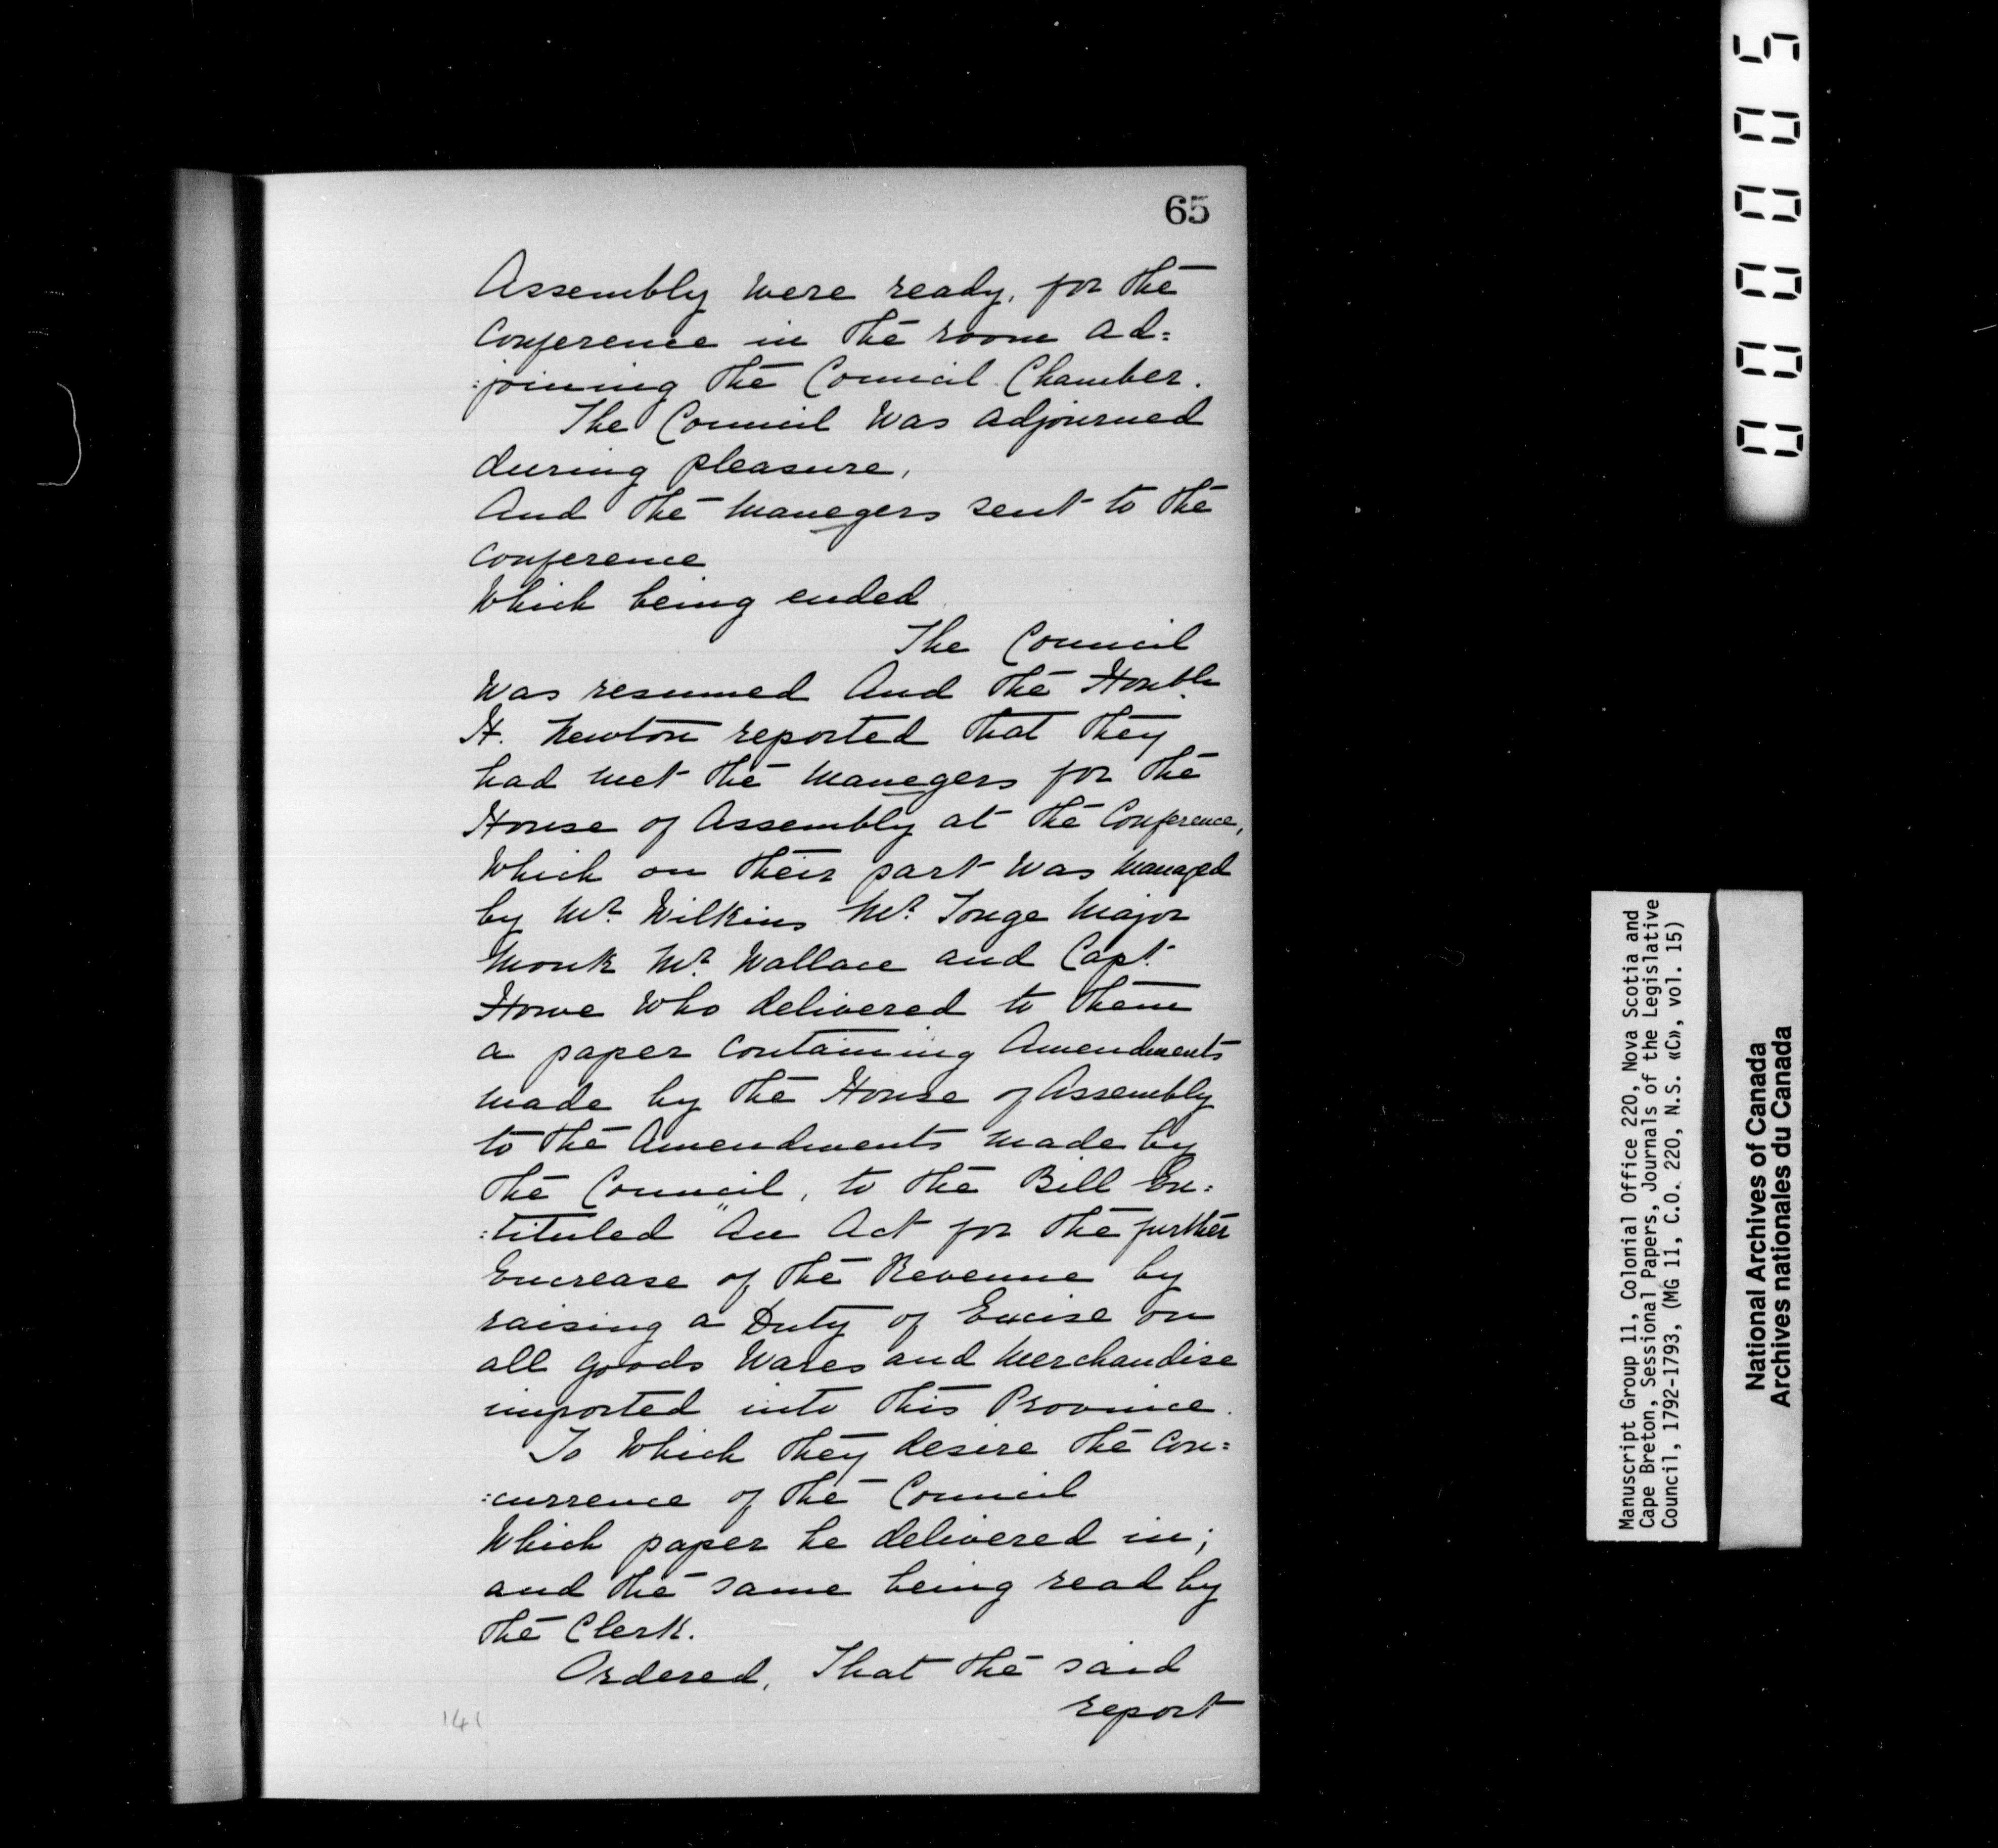 65
Assembly were ready, for the
Conference in the room ad=
=joining the Council Chamber.
The Council was adjourned
during pleasure,
And the manegers sent to the
Conference
Which being ended
The Council
Was resumed And the Honble
H. Newton reported that they
had met the manegers for the
House of Assembly at the Conference,
Which on their part was managed
by Mr. Wilkins Mr. Tonge Major
Monk Mr. Wallace and Capt.
Howe who delivered to them
a paper containing Amendments
made by the House of Assembly
to the Amendments made by
the Council, to the Bill En=
:tituled "An Act for the further
Encrease of the Revenue by
raising a Duty of Excise on
all goods Wares and Merchandise
imported into this Province.
To Which they desire the Con=
:currence of the Council
Which paper he delivered in;
and the same being read by
the Clerk.
Ordered, That the said
report
141
000005
Manuscript Group 11, Colonial Office 220, Nova Scotia and
Cape Breton, Sessional Papers, Journals of the Legislative
Council, 1792-1793, (MG 11, C.O. 220, N.S. «C», vol. 15)
National Archives of Canada
Archives nationales du Canada